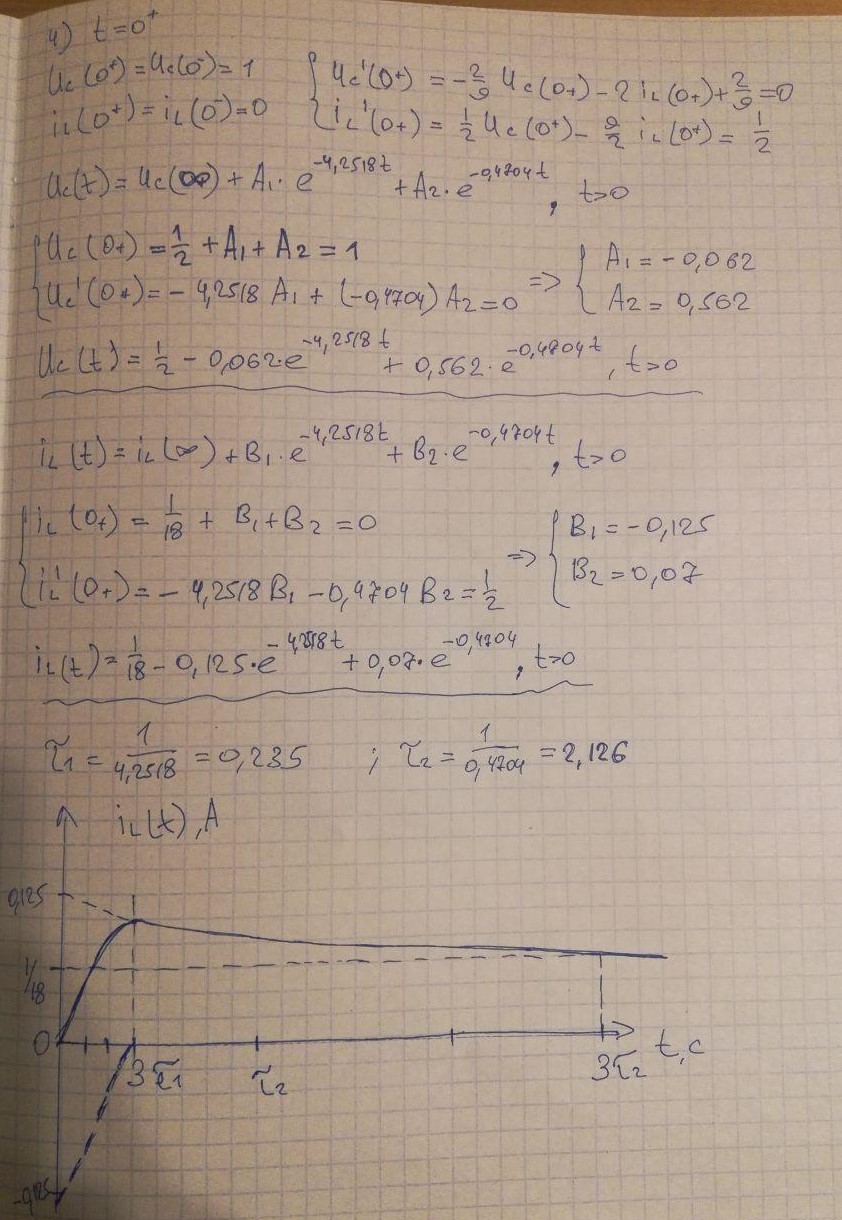 4) t=0⁺
Uc(0⁺)=Uc(0⁻)=1
iL(0⁺)=iL(0⁻)=0
{ Uc'(0+) = -2/9 Uc(0+) - 2 iL(0+) + 2/9 = 0
iL'(0+) = 1/2 Uc(0+) - 9/2 iL(0+) = 1/2
Uc(t) = Uc(∞) + A₁·e^(-4,2518t) + A₂·e^(-0,4704t), t>0
{ Uc(0+) = 1/2 + A₁ + A₂ = 1
Uc'(0+) = -4,2518 A₁ + (-0,4704) A₂ = 0
=> { A₁ = -0,062
A₂ = 0,562
Uc(t) = 1/2 - 0,062·e^(-4,2518t) + 0,562·e^(-0,4704t), t>0
iL(t) = iL(∞) + B₁·e^(-4,2518t) + B₂·e^(-0,4704t), t>0
{ iL(0+) = 1/18 + B₁ + B₂ = 0
iL'(0+) = -4,2518 B₁ - 0,4704 B₂ = 1/2
=> { B₁ = -0,125
B₂ = 0,07
iL(t) = 1/18 - 0,125·e^(-4,2518t) + 0,07·e^(-0,4704), t>0
τ₁ = 1/4,2518 = 0,235 ; τ₂ = 1/0,4704 = 2,126
iL(t), A
0,125
1/18
0
3τ₁
τ₂
3τ₂
t, c
-0,125